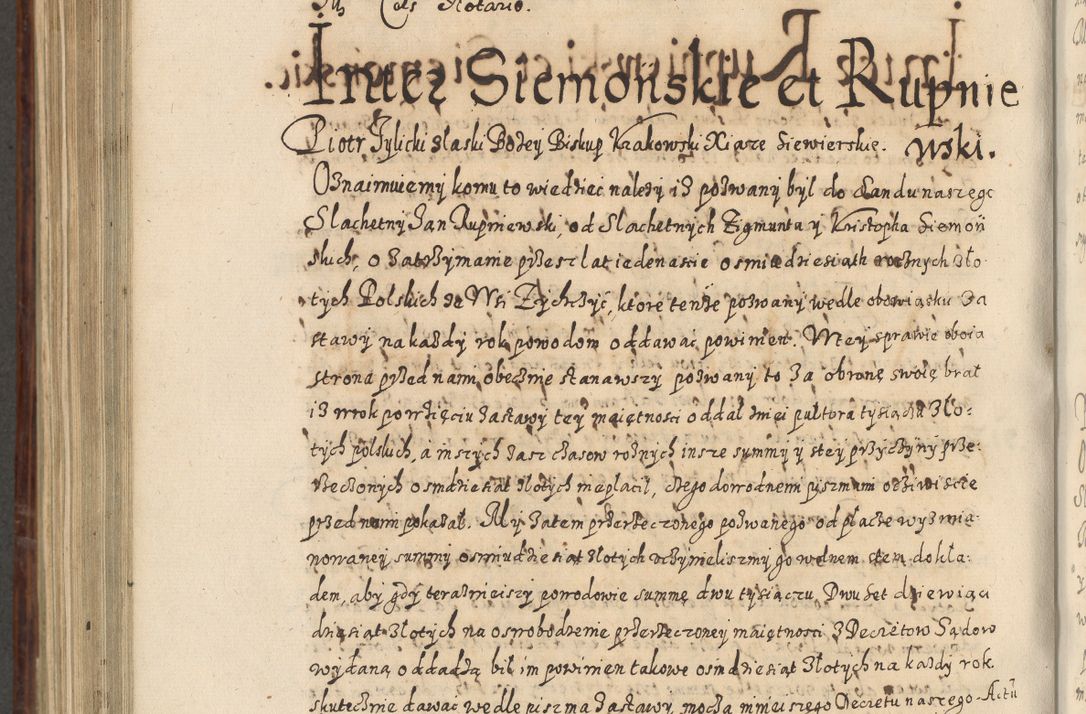 Notario.
Inter Siemonskie et Rupnie
wski.
Piotr Tylicki z laski Bozey Biskup Krakowski Xiąze Siewierskie.
Oznaimuiemy komu to wiedziec nalezy iz pozwany był do sandu naszego
Slachetny Jan Rupniewski, od Slachetnych Zigmunta y Kristopha Siemoń
skich, o zatrzymanie przesz lat iedenascie osmidziesiath rocznych zło
tych Polskich ze Wsi Zychczyc, ktore tenze pozwany wedle obowiąsku za
stawy na kazdy rok powodom oddawac powinien. W tey sprawie oboia
strona przed nami obecznie stanawszy pozwany to za obronę swoię brał
iz wrok po wzięciu zastawy tey maiętnosci oddal zniei pultora tysiącza zło:
tych polskich, a inszych zasz czasow roznych insze summy y stey przyczyny prze:
rzeczonych osmdziesiat zlotych nieplacił, czego dowodnemi pyszmam oczwiscie
przed nami pokazał. My zatem przerzeczonego pozwanego od płacze wyzmia:
nowaney summy osmudziesiat zlotych uczynieliszmy go wolnem stem dokła:
dem, aby gdy terazniejszy powodowie summę dwu tysiączu Dwuset dziewiąci
dziesiat zlotych na oswobodzenie przerzeczoney maiętnosci z Decretow Sądow
wydaną oddadzą bił im powinien takowe osmdziesiąt złotych na kazdy rok
skutecznie dawac wedle piszma zastawy, moczą mnieiszego Decretu naszego. Actū